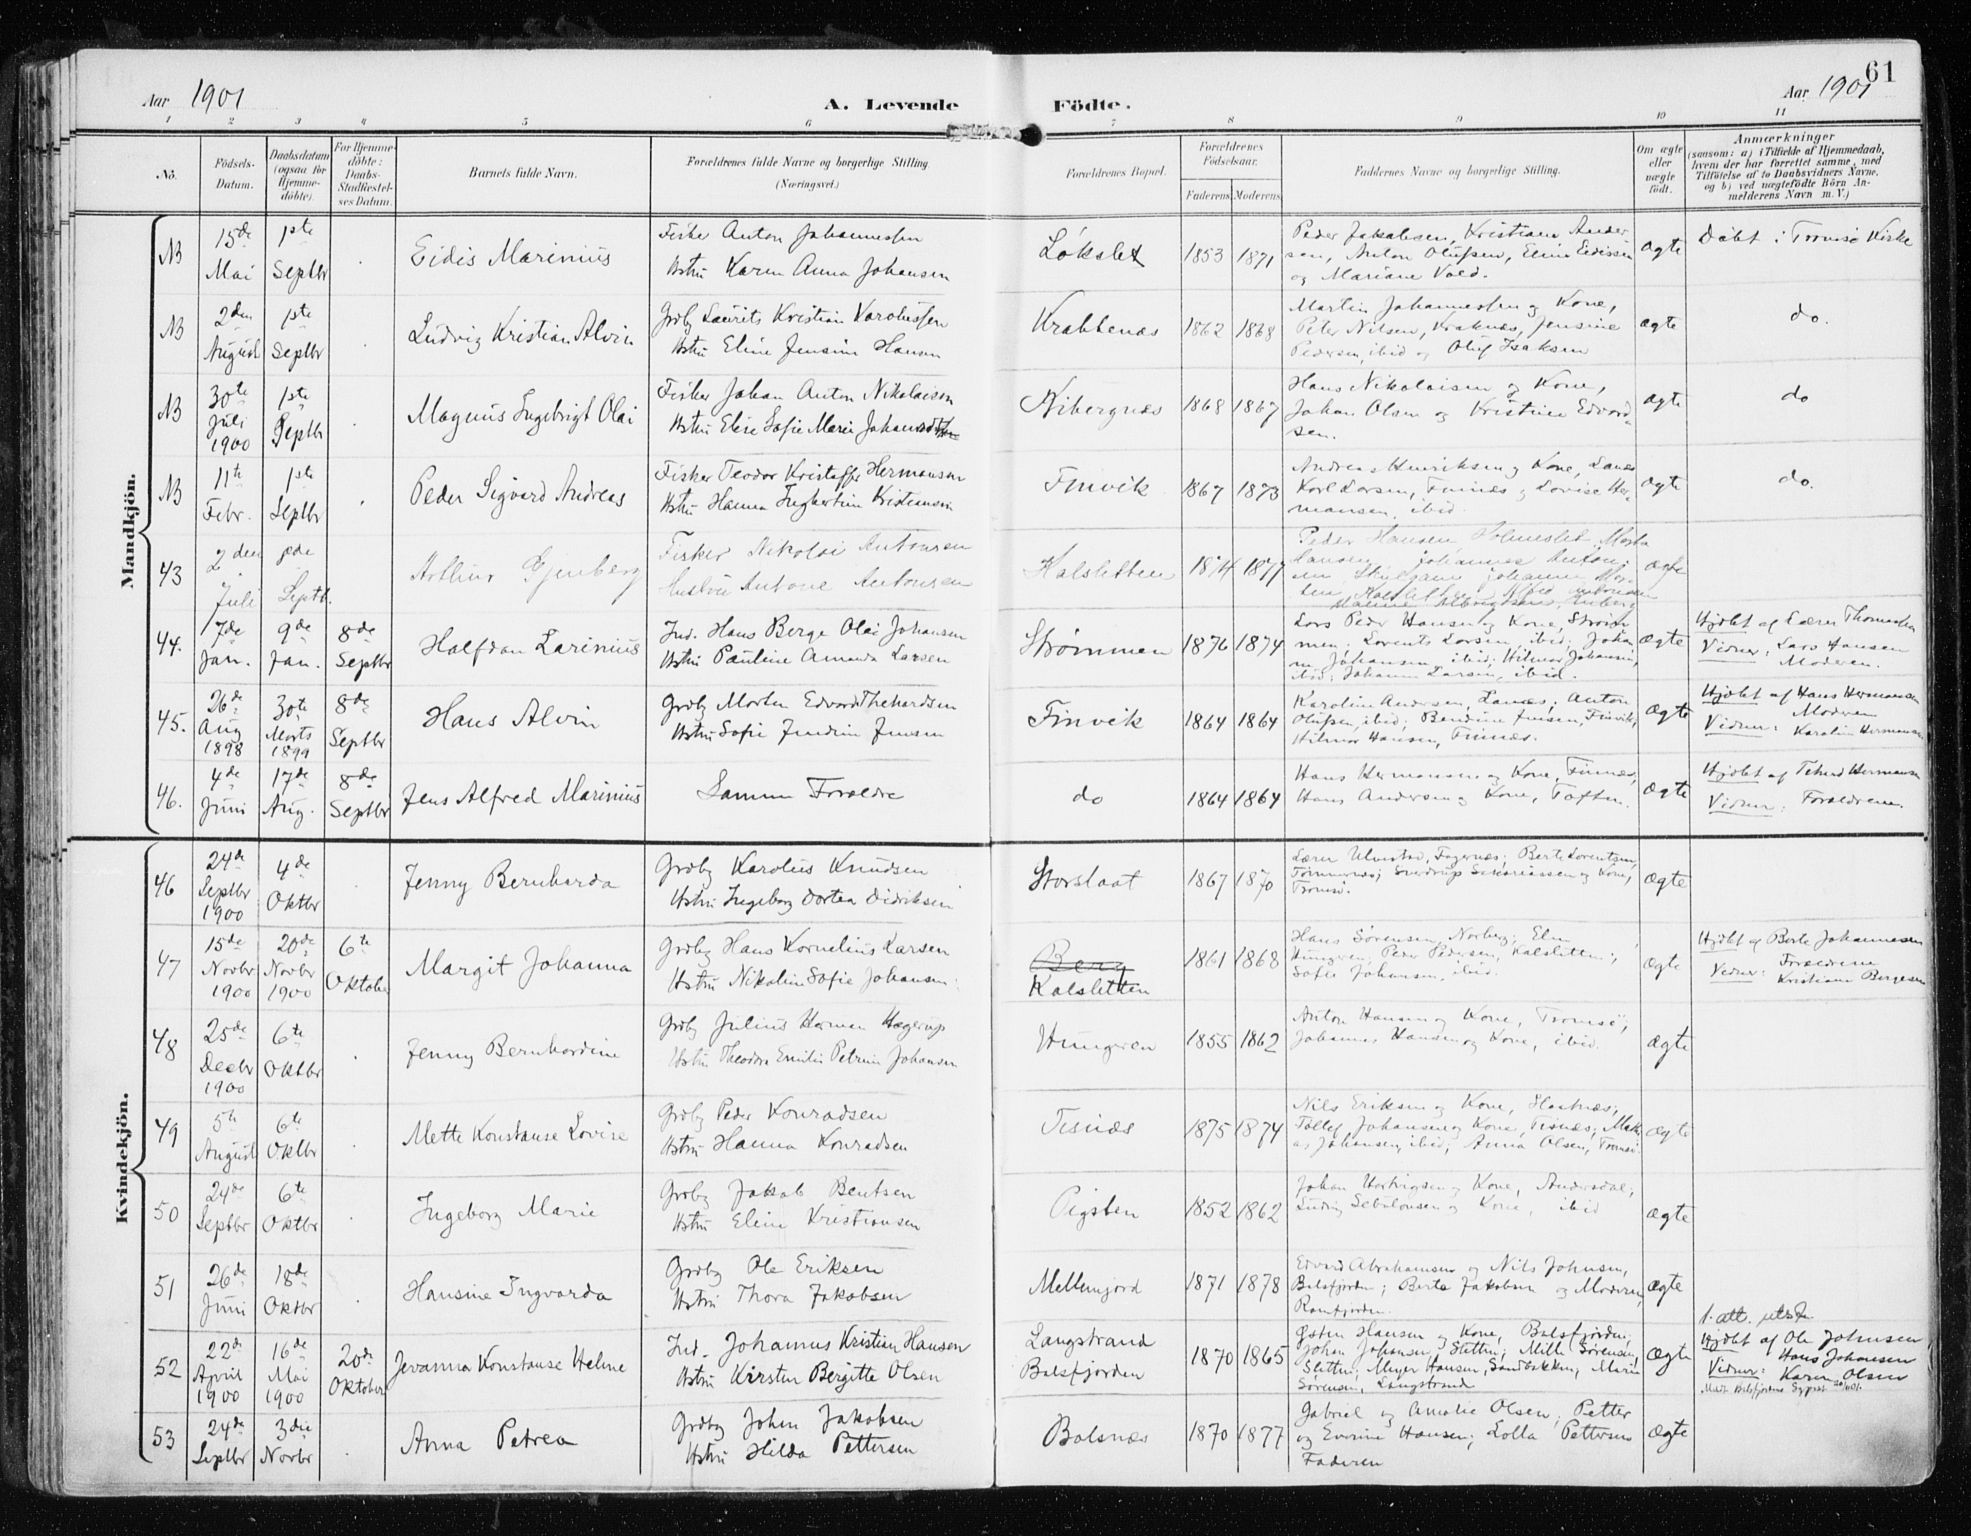 61
Aar 1901
A. Levende Födte.
Aar 1901
1 2 3 4 5 6 7 8 9 10 11
No.
Födsels-
Datum.
Daabsdatum
(ogsaa for
Hjemme-
döbte).
For Hjemme-
döbte:
Daabs-
Stadfæstel-
ses Datum.
Barnets fulde Navn.
Forældrenes fulde Navne og borgerlige Stilling.
(Næringsvei.)
Forældrenes Bopæl.
Forældrenes
Födselsaar.
Faderens. Moderens.
Faddernes Navne og borgerlige Stilling.
Om ægte
eller
uægte
födt.
Anmærkninger
(saasom: a) i Tilfælde af Hjemmedaab,
hvem der har forrettet samme, med
Tilföielse af to Daabsvidners Navne,
og b) ved uægtefödte Börn An-
melderens Navn m. V.)
Mandkjön.
NB
15de
Mai
1ste
Septbr
Eidis Marinius
Fisker Anton Johannessen
Hstru Karen Anna Johansen
Løkslet
1853 1871
Peder Jakobsen, Kristiane Ander
sen, Anton Olufsen, Eline Eidissen
og Mariane Vold.
ægte
Døbt i Tromsø Kirke
NB
2den
August
1ste
Septbr
Ludvig Kristian Alvin
Grdb Laurits Kristian Karolussen
Hstru Eline Jensine Hansen
Krabbenæs
1862 1868
Martin Johannessen og Kone,
Peter Nilsen, Kraknæs, Jensine
Pedersen, ibid og Oluf Isaksen
ægte
do.
NB
30te
Juli
1900
1ste
Septbr
Magnus Ingebrigt Olai
Fisker Johan Anton Nikolaisen
Hstru Elise Sofie Marie
Kibergnæs
1868 1867
Hans Nikolaisen og Kone,
Johan Olsen og Kristine Edvard
sen.
ægte
do
NB
11te
Febr.
1ste
Septbr
Peder Sigvard Andreas
Fisker Teodor Kristoffer Hermansen
Hstru Hanna Ingbertine Kristiansen
Finvik
1867 1873
Andreas Henriksen og Kone, Lanæs
Karl Larsen, Finnæs og Lovise Her
mansen, ibid
ægte
do.
43
2den
Juli
Septb.
Arthur Gjenberg
Fisker Nikolai Antonsen
Hustru Antone Antonsen
Kalsletten
1874 1877
Peder Hansen Holmeslet,
Hansen Johannes Anton
ægte
44.
7de
Jan.
9de
Jan.
8de
Septbr
Halfdan Larinius
Ind. Hans Berge Olai Johansen
Hstru Pauline Amanda Larsen
Strømmen
1876 1874
Lars Peder Hansen og Kone, Strøm
men; Lorents Larsen, ibid; Johan
Johansen, ibid; Hilmar Johansen,
ibid; Johanna Larsen, ibid.
ægte
Hjdbt af Lærer Thomassen
Vidner: Lars Hansen
Moderen.
45.
26de
Aug
1898
30te
Marts
1899
8de
Septbr
Hans Alvin
Grdb Morten Edvard Thehardsen
Hstru Sofie Jendine Jensen
Finvik
1864 1864
Karoline Andersen, Lanæs; Anton
Olufsen, ibid; Bendine Jensen, Finvik;
Hilmar Hansen, Finnæs.
ægte
Hjdbt af Hans Hermansen
Moderen
Vidner: Karolin Hermansen
46.
4de
Juni
17de
Aug.
8de
Septbr
Jens Alfred Marinius
Samme Forældre
do
1864 1864
Hans Hermansen og Kone, Finnæs,
Hans Andersen og Kone, Toften.
ægte
Hjdbt af Hermansen
Vidner: Forældrene.
Kvindekjön.
46
24de
Septbr
1900
4de
Oktbr
Jenny Bernharda
Grdb Karolus Knudsen
Hstru Ingeborg Dortea Didriksen
Storslaat
1867 1870
Lærer Ulvestad, Fagernæs; Berte Lorentsen,
Tømmernæs; Sakariassen og Kone,
Tromsø.
ægte
47
15de
Novbr
1900
20de
Novbr
1900
6te
Oktober
Margit Johanna
Grdb Hans Kornelius Larsen
Hstru Nikoline Sofie Johansen
Berg
Kalsletten
1861 1868
Hans Sørensen, Norberg; Elen
Hungeren; Peder Pedersen, Kalsletten;
Sofie Johansen, ibid.
ægte
Hjdbt af Berte Johannesen
Vidner: Forældrene
Kristiane Bergesen
48
25de
Decbr
1900
6te
Oktbr
Jenny Bernhardine
Grdb Julius Herman Hagerup
Hstru Theodora Emilie Petrine Johansen
Hungren
1855 1862
Anton Hansen og Kone, Tromsø;
Johannes Hansen og Kone, ibid.
ægte
49
5te
August
6te
Oktbr
Mette Konstanse Lovise
Grdb Peder Konradsen
Hstru Hanna Konradsen
Tisnæs
1875 1874
Nils Eriksen og Kone,
Tollef Johansen og Kone, Tisnæs;
Johansen, ibid; Anna Olsen, Tromsø.
ægte
50
24de
Septbr
6te
Oktbr
Ingeborg Marie
Grdb Jakob Bentsen
Hstru Eline Kristiansen
Pigsten
1852 1862
Johan Hartvigsen og Kone, Andersdal;
Ludvig Sebulonsen og Kone, ibid
ægte
51
26de
Juni
18de
Oktbr
Hansine Ingvarda
Grdb Ole Eriksen
Hstru Thora Jakobsen
Mellemjord
1871 1878
Edvard Abrahamsen og Nils Johnsen,
Balsfjorden; Berte Jakobsen og Moderen,
Ramfjorden.
ægte
52
22de
April
1900
16de
Mai
1900
20de
Oktober
Jevanna Konstanse Helene
Ind. Johannes Kristian Hansen
Hstru Kirsten Bergitte Olsen
Langstrand
Balsfjorden
1870 1865
Østen Hansen og Kone, Balsfjorden;
Johan Johansen, Sletten; Mille Sørensen,
Sletten; Meyer Hansen, Sandbakken; Marie
Sørensen, Langstrand
ægte
1. att. utst.
Hjdbt af Ole Johnsen
Vidner: Hans Johansen
Karen Olsen
53
24de
Septbr
3die
Novbr
Anna Petrea
Grdb Johan Jakobsen
Hstru Hilda Pettersen
Balsnæs
1870 1877
Gabriel og Amalie Olsen; Petter
og Everine Hansen; Lolla Pettersen
Faderen
ægte